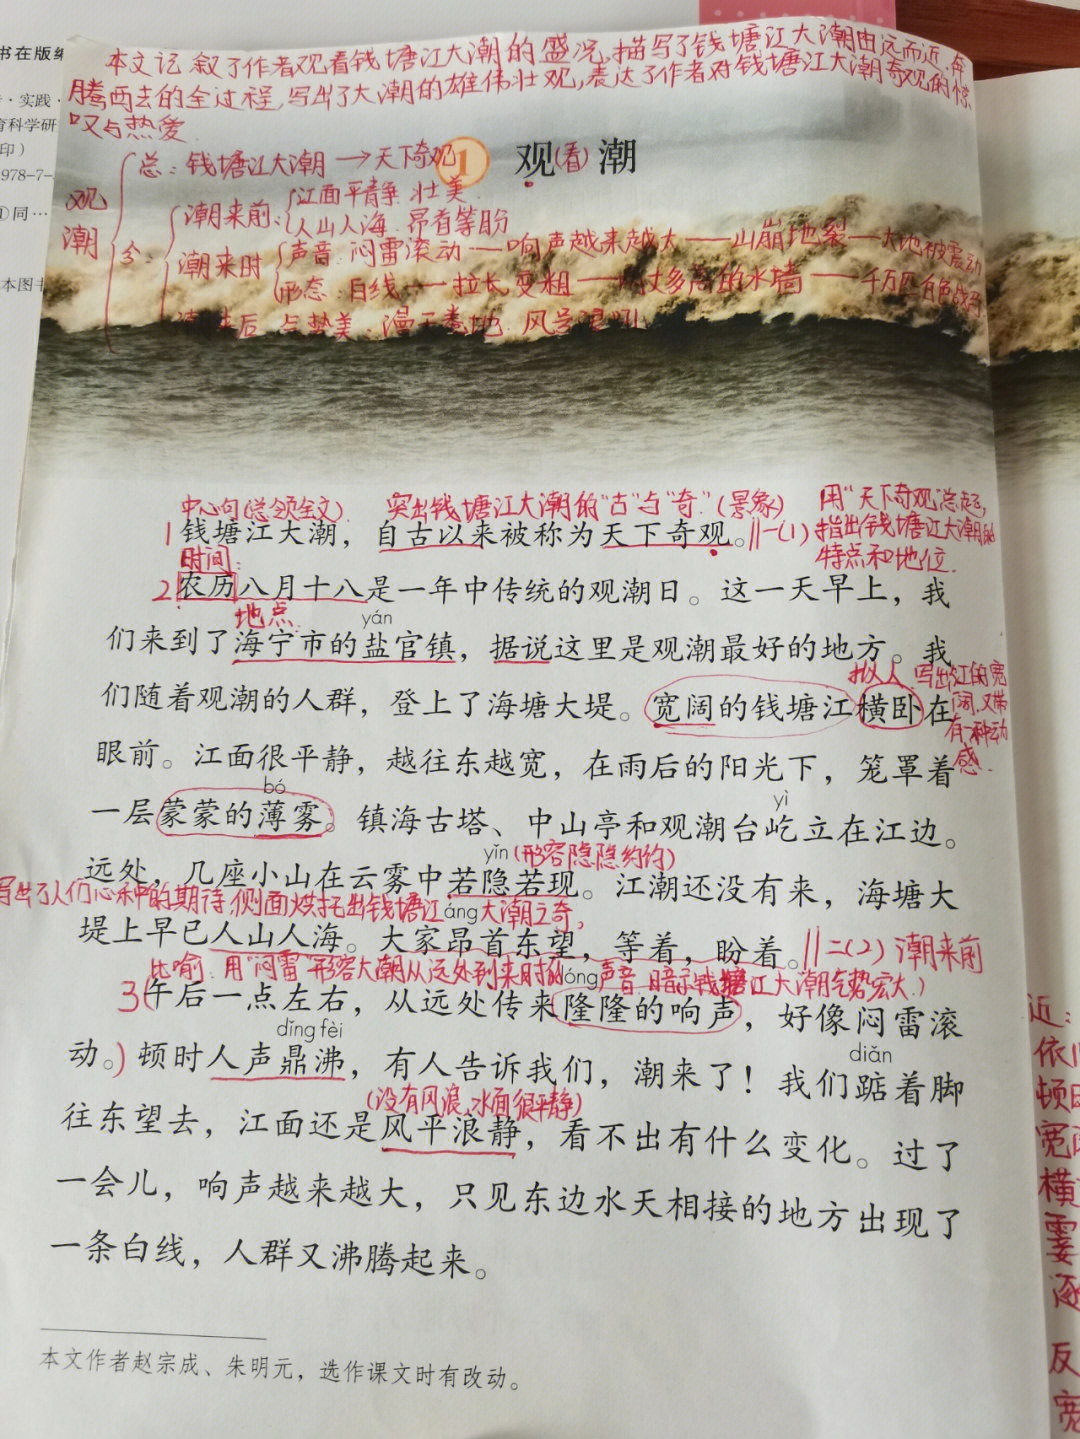 书在版编
·实践·
育科学研
印）
978-7-
①同…
本图书
本文记叙了作者观看钱塘江大潮的盛况,描写了钱塘江大潮由远而近、奔
腾西去的全过程,写出了大潮的雄伟壮观,表达了作者对钱塘江大潮奇观的惊
叹与热爱
1 观(看)潮
观潮
总:钱塘江大潮→天下奇观
分:
潮来前:
江面平静 壮美
人山人海 昂首等盼
潮来时
声音:闷雷滚动——响声越来越大——山崩地裂——大地被震动
形态:白线——拉长,变粗——丈多高的水墙——千万匹白色战马
后 漫天卷地 风号浪吼
中心句(总领全文) 突出钱塘江大潮的"古"与"奇"(景象) 用"天下奇观"总起,
指出钱塘江大潮的
特点和地位.
1 钱塘江大潮，自古以来被称为天下奇观。‖一(1)
时间:
2 农历八月十八是一年中传统的观潮日。这一天早上，我
地点 yán
们来到了海宁市的盐官镇，据说这里是观潮最好的地方。我
拟人 写出江的宽
阔,又带
有一种动
感.
们随着观潮的人群，登上了海塘大堤。宽阔的钱塘江横卧在
眼前。江面很平静，越往东越宽，在雨后的阳光下，笼罩着
bó yì
一层蒙蒙的薄雾。镇海古塔、中山亭和观潮台屹立在江边。
yǐn (形容隐隐约约)
远处，几座小山在云雾中若隐若现。江潮还没有来，海塘大
写出了人们心种的期待,侧面烘托出钱塘江大潮之奇,
áng
堤上早已人山人海。大家昂首东望，等着，盼着。‖二(2) 潮来前
比喻:用"闷雷"形容大潮从远处到来时的声音.暗示钱塘江大潮气势宏大.)
lóng
3(午后一点左右，从远处传来隆隆的响声，好像闷雷滚
dǐng fèi diǎn
动。)顿时人声鼎沸，有人告诉我们，潮来了！我们踮着脚
(没有风浪,水面很平静)
往东望去，江面还是风平浪静，看不出有什么变化。过了
一会儿，响声越来越大，只见东边水天相接的地方出现了
一条白线，人群又沸腾起来。
本文作者赵宗成、朱明元，选作课文时有改动。
近:
依
顿时
宽
横
霎
逐
反
宽